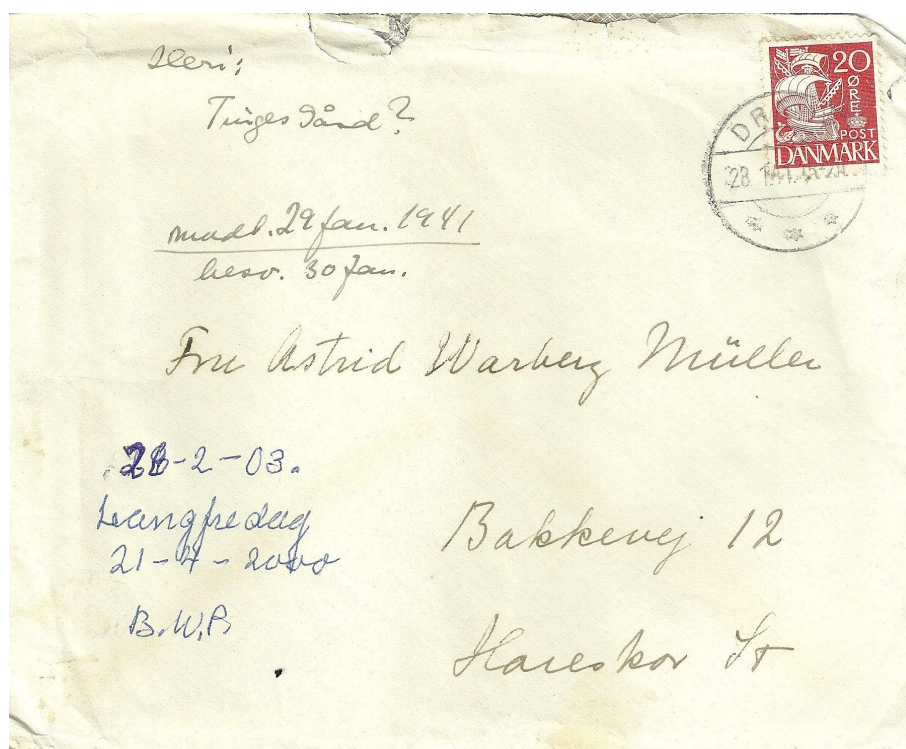 Heri:
Tinges Gård?
20
ØRE
POST
DANMARK
DR
28 1.41
modt. 29 Jan. 1941
besv. 30 Jan.
Fru Astrid Warberg Müller
28-2-03.
Langfredag
21-4-2000
B.W.P.
Bakkevej 12
Hareskov St